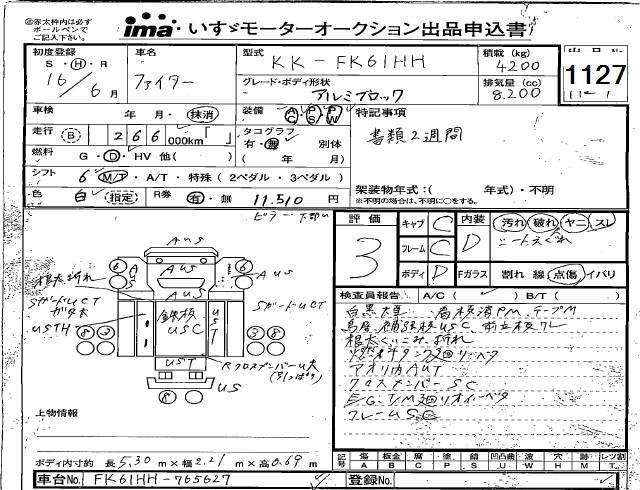 ※赤太枠内は必ず
ボールペンで
ご記入下さい。
ima いすゞモーターオークション出品申込書
初度登録
S・H・R
16/6月
車名
ファイター
型式
KK-FK61HH
グレード・ボディ形状
アルミブロック
積載(kg)
4200
排気量(cc)
8.200
1127
車検 年 月・抹消
装備 AC PS PW
特記事項
書類2週間
走行 B 266 000km
タコグラフ
有・無 別体
( 年 月)
燃料 G・D・HV 他( )
シフト 6 M/T・A/T・特殊(2ペダル・3ペダル)
架装物年式:( 年式)・不明
※不明の場合は、不明に○をする。
色 白 指定 R券 有・無 11.510円
ピラー下部U
評価
3
キャブ C
フレーム C
ボディ D
内装 D
汚れ 破れ ヤニ スレ
シートえぐれ
Fガラス 割れ 線 点傷 イバリ
検査員報告 A/C( ) B/T( )
AUS
AUS
AUS
AUS
根太折れ
SガードUCT
ガタ大
USTH
鉄板
USC
UST
SガードUCT
UST
RクロスメンバーU大
(引っぱり)
US
6
6
8
3
3
8
8
根太くいこみ折れ
アオリ内AUT
クロスメンバーSC
E/G. T/M廻りオイルベタ
フレームUSC
上物情報
ボディ内寸約 長5.30m×幅2.21m×高0.69m
記号 傷A 板金B 腐C 塗P 錆S 凹凸曲U 波W 穴H 跡M レツ割T
車台No. FK61HH-765627
登録No.